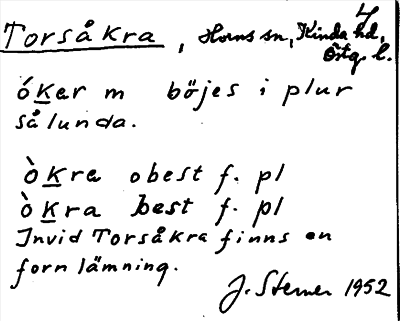 4
Torsåkra, Horns sn, Kinda hd,
Östg. l.
óker m böjes i plur
sålunda.
òkre obest f. pl
òkra best f. pl
Invid Torsåkra finns en
fornlämning.
J. Sterner 1952